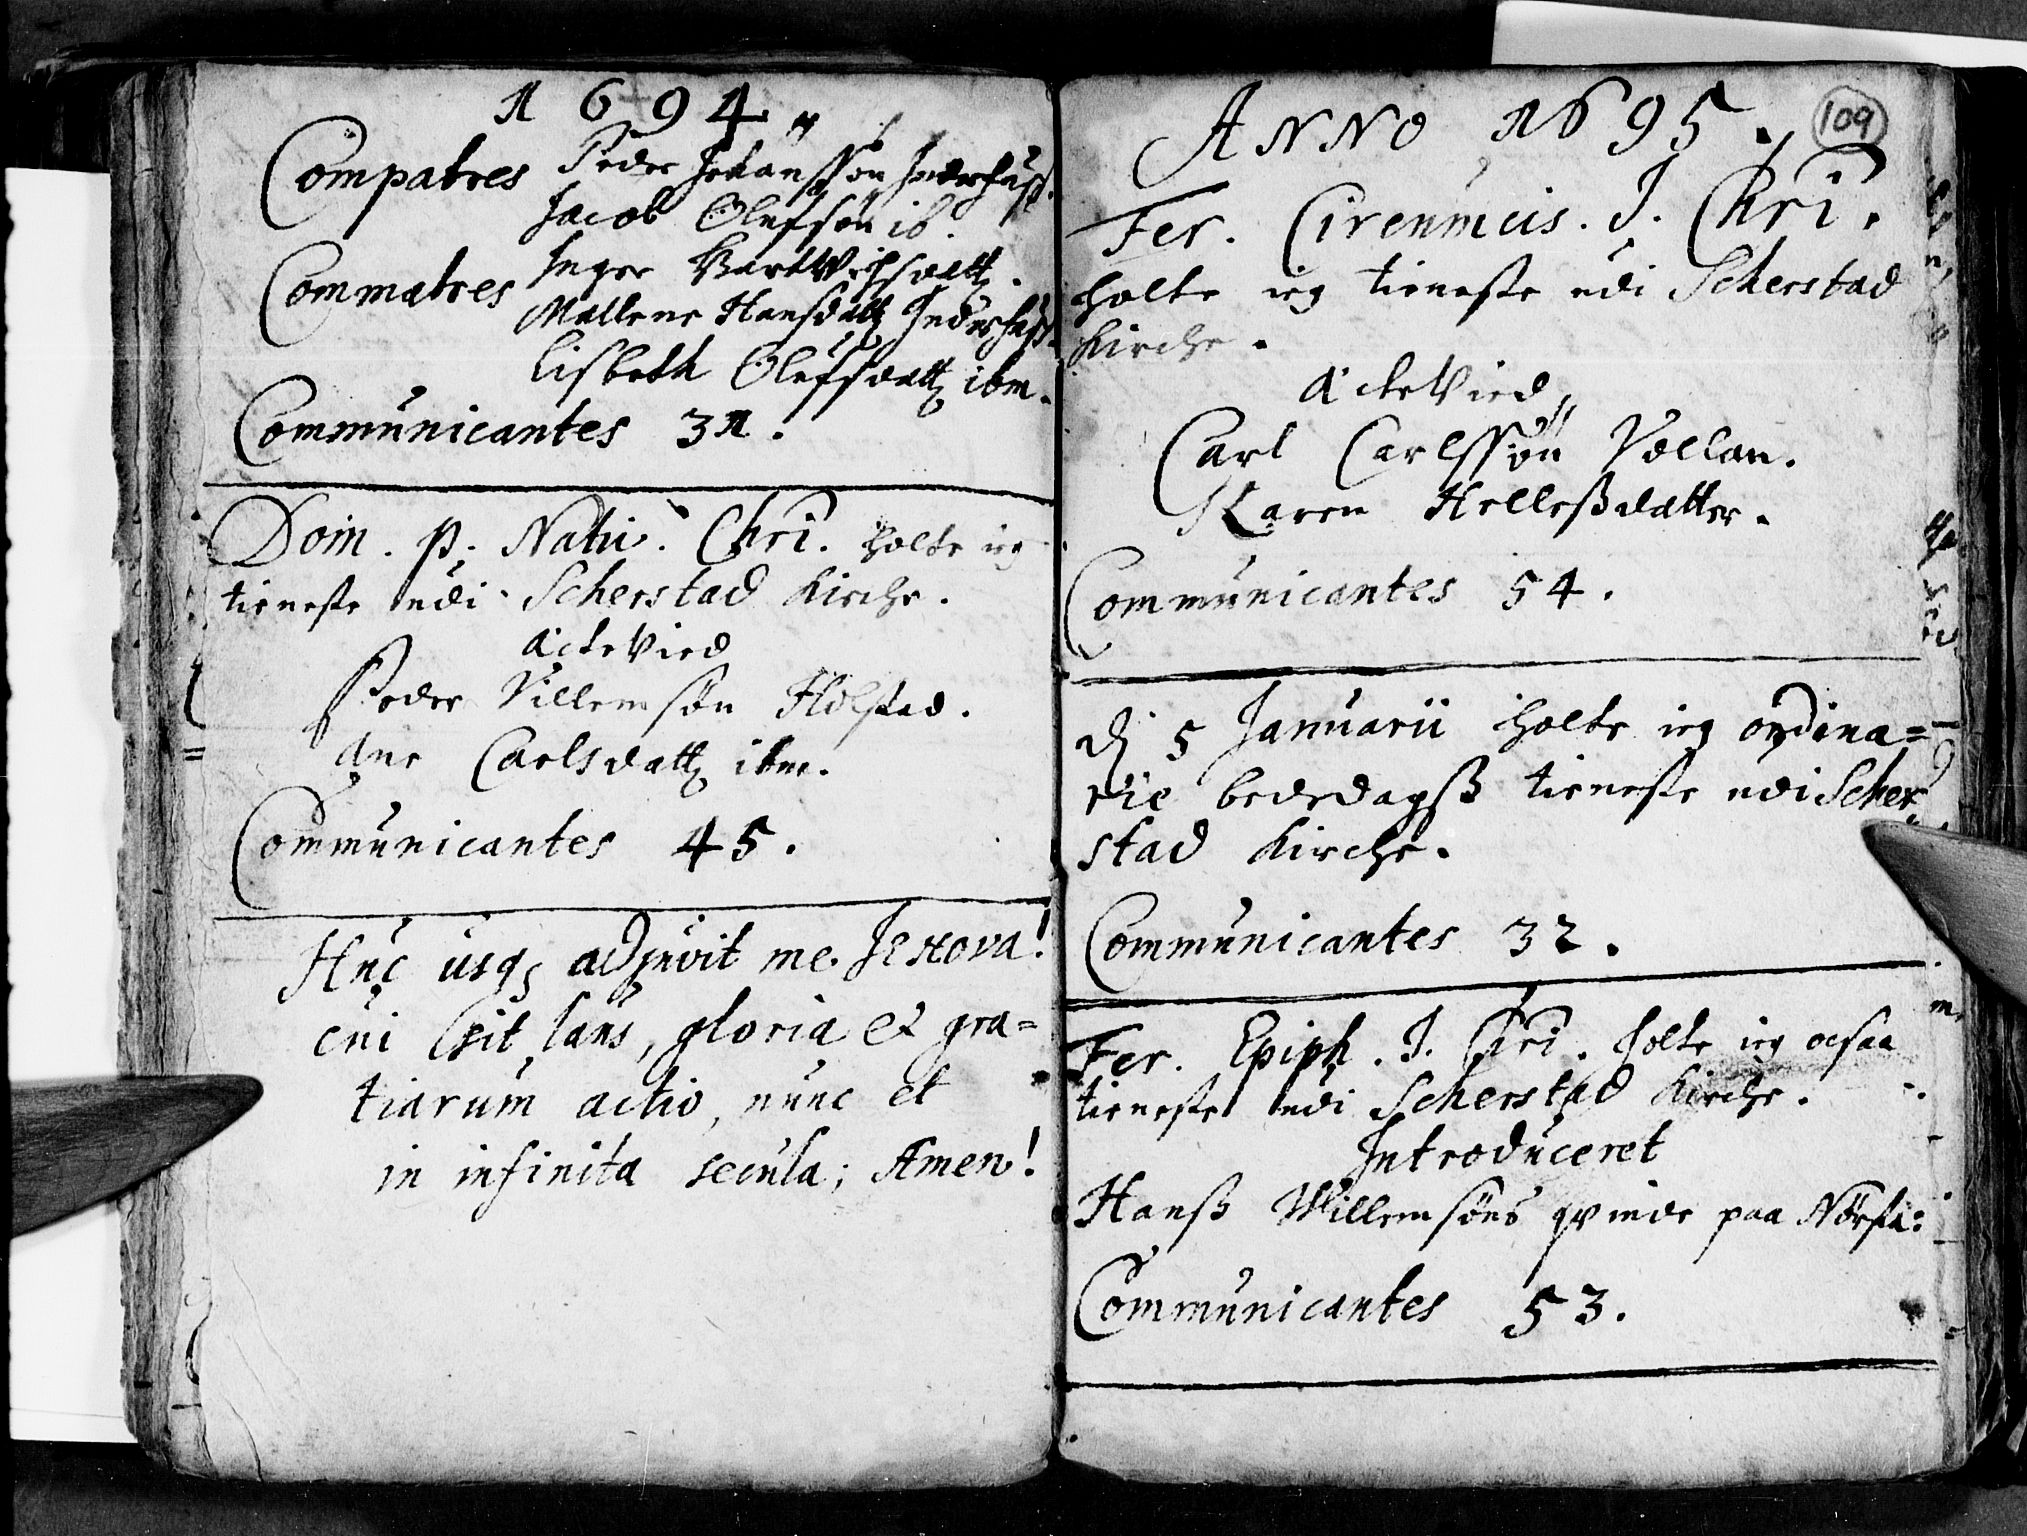 1694.
Compatres Peder Johansson Inderhuß.
Jacob Olufsøn ib.
Commatres Inger Hartvichsdatt.
Mallene Hansdatt Inderhuß.
Lisbeth Olufsdatt ibm.
Communicantes 31.
Dom. p. Nativ. Chri. holte ieg
tieneste udi Scherstad Kirche.
ächtevied
Peder Villemsøn Holstad.
Ane Carlsdatt ibm.
Communicantes 45.
Huc usq, adjuvit me Jehova!
cui sit laus, gloria et gra=
tiarum actio, nunc et
in infinita secula; Amen!
ANNO 1695.
109
Fer. Circumcis. J. Chri.
holte ieg tieneste udi Scherstad
Kirche.
ächtevied,
Carl Carlssøn Vollan.
Karen Helleßdatter.
Communicantes 54.
d 5 Januarii holte ieg ordina=
rie bededagß tieneste udi Scher
stad Kirche.
Communicantes 32.
Fer. Epiph. J. Chri. holte ieg ocsaa
tieneste udi Scherstad Kirche.
Introduceret
Hanß Willemsøns qvinde paa Nørsta:
Communicantes 53.